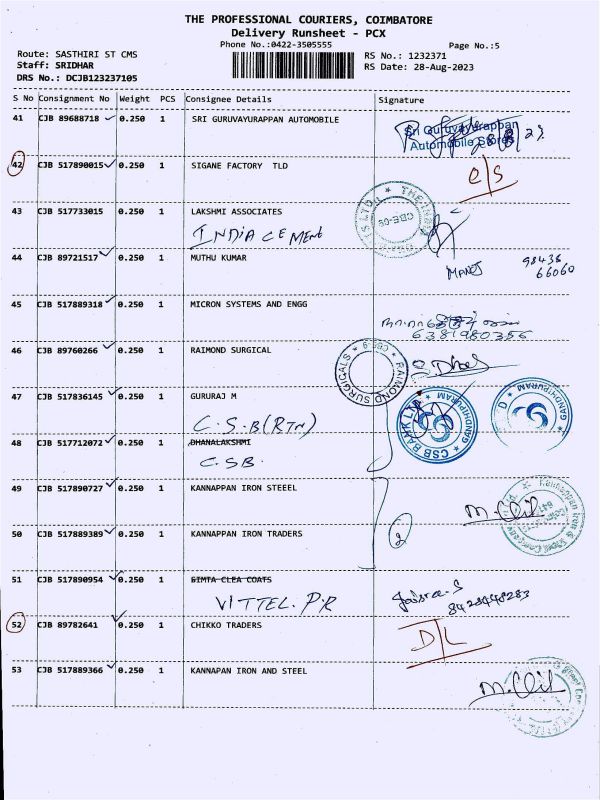 THE PROFESSIONAL COURIERS, COIMBATORE
Delivery Runsheet - PCX
Phone No.:0422-3505555
Page No.:5
Route: SASTHIRI ST CMS
RS No.: 1232371
Staff: SRIDHAR
RS Date: 28-Aug-2023
DRS No.: DCJB123237105
S No Consignment No Weight PCS Consignee Details Signature
41 CJB 89688718 0.250 1 SRI GURUVAYURAPPAN AUTOMOBILE
Sri Guruvayurappan
Automobile Stores
42 CJB 517890015 0.250 1 SIGANE FACTORY TLD
O/S
43 CJB 517733015 0.250 1 LAKSHMI ASSOCIATES
INDIA CEMENT
44 CJB 89721517 0.250 1 MUTHU KUMAR
MANOJ 98438
66060
45 CJB 517889318 0.250 1 MICRON SYSTEMS AND ENGG
6381980356
46 CJB 89760266 0.250 1 RAIMOND SURGICAL
RAIMOND SURGICALS CBE-9
47 CJB 517836145 0.250 1 GURURAJ M
C.S.B(RTN)
CSB BANK LTD GANDHIPURAM
GANDHIPURAM
48 CJB 517712072 0.250 1 DHANALAKSHMI
C.S.B.
49 CJB 517890727 0.250 1 KANNAPPAN IRON STEEEL
50 CJB 517889389 0.250 1 KANNAPPAN IRON TRADERS
2
51 CJB 517890954 0.250 1 SIMTA CLEA COATS
VITTEL. P.R
8428448283
52 CJB 89782641 0.250 1 CHIKKO TRADERS
D/L
53 CJB 517889366 0.250 1 KANNAPAN IRON AND STEEL